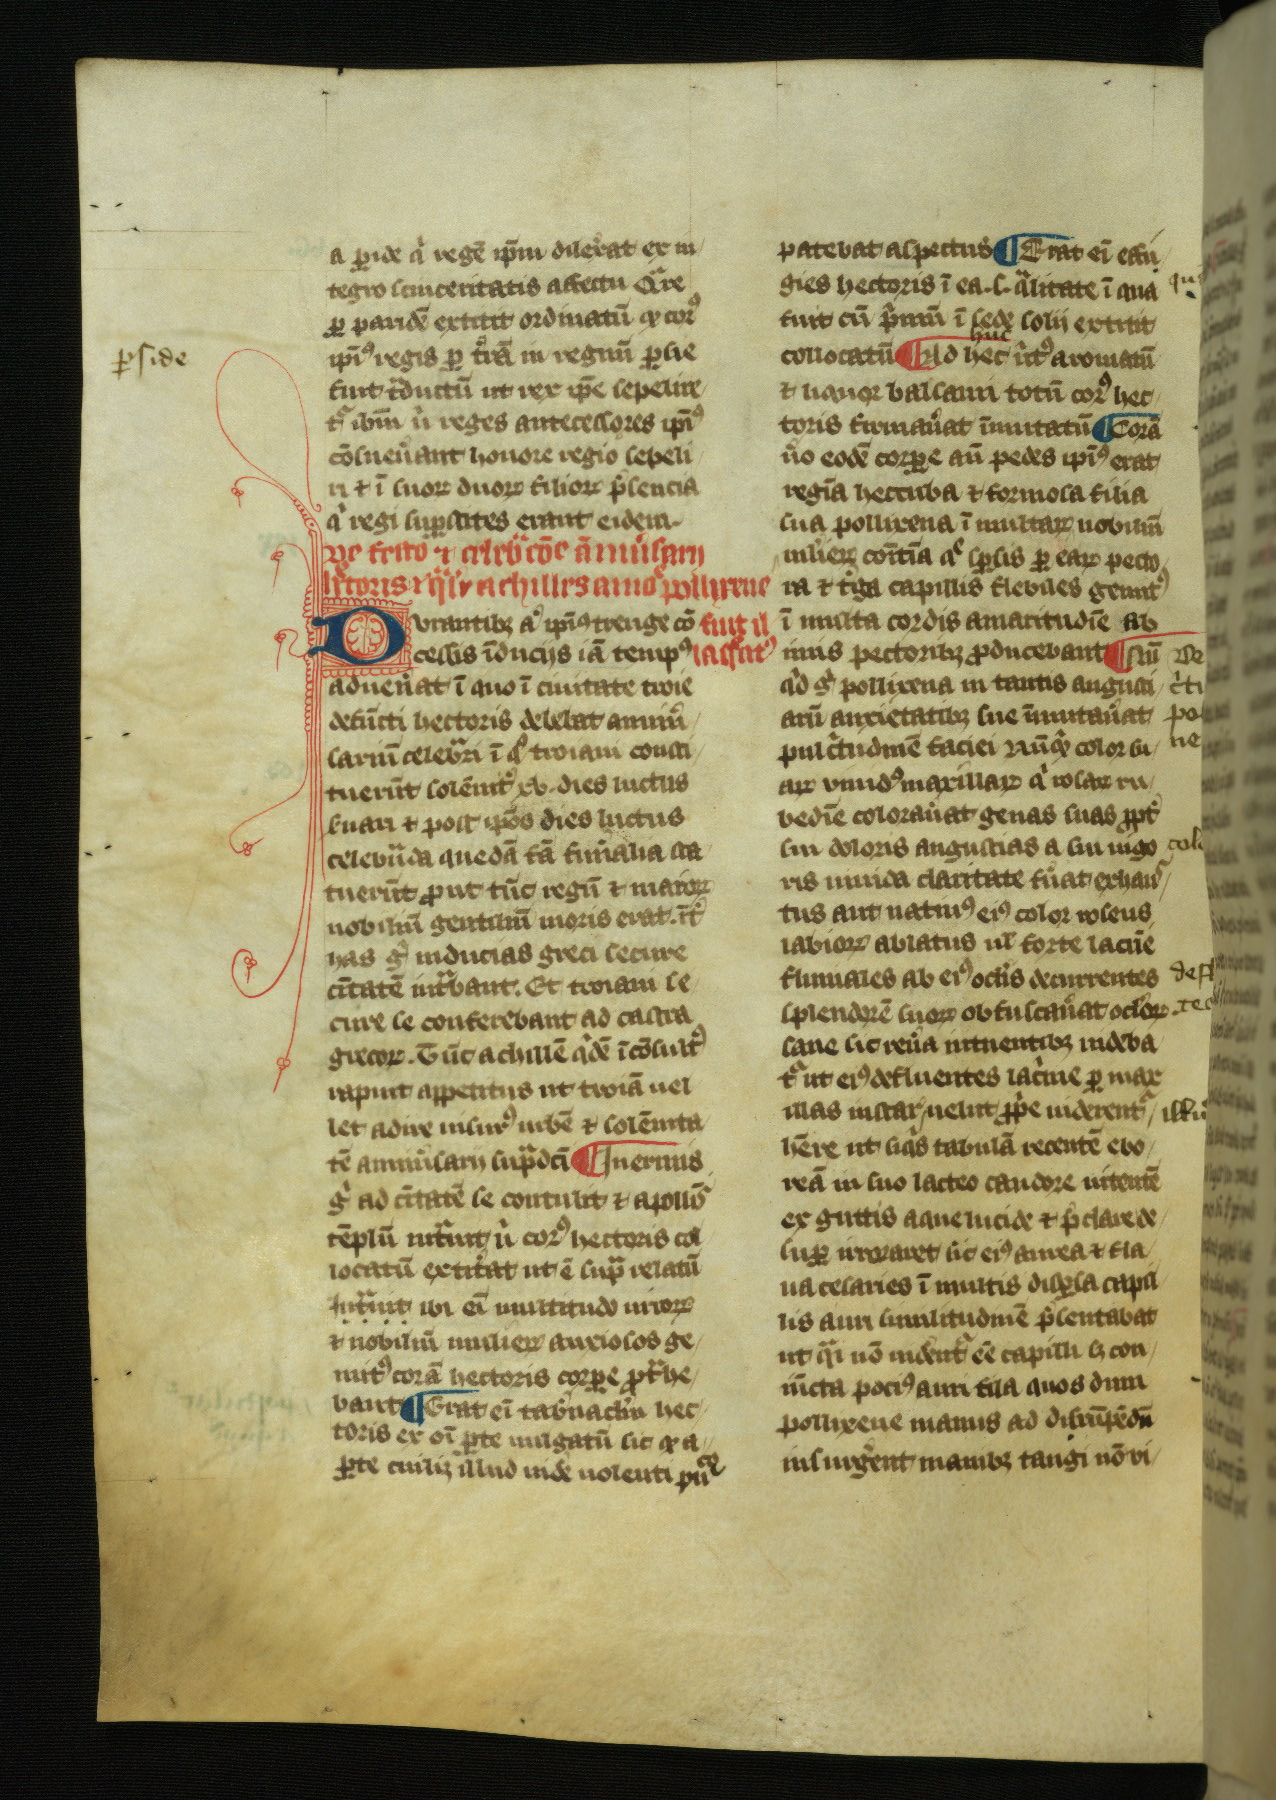 a ꝑide q̇ regē ip̄m dilex̾at ex in/
tegro sinceritatis affectu Qͣre
ꝑ paridē extitit ordinatū qͥ corꝰ
ip̄iꝰ regis ꝑ t̾rā in regnū ꝑsie
fuit t̾ductū ut rex ip̄e sepelire
tͬ ibm̄ u̇ reges antecessores ipīꝰ
cōsuev̾ant honore regio sepeli/
ri ⁊ ī suoꝝ duoꝝ filioꝝ p̄sencia
q̇ regi suꝑstites erant eidem.
De festo ⁊ celebͣcōe āniu̾sarij
hc̄toris ⁊ qͣlr̄ achilles amoͤ pollixene
fuit il
laqͣatꝰ
Durantibꝫ aͥ ipīꝰ treuge cō
cessis īducijs iā tempꝰ
advenāt ī quo ī civitate troie
defūcti hectoris debebat anniv̾/
sariū celebͣri ī qͦ troiani consti/
tuerūt solēnitͬ xv. dies luctus
⁊ post ipōs dies luctus
celebrāda quedā fā fun̾alia sta
tuerūt ꝓut tūc regū ⁊ maioꝝ
nobiliū gentiliū moris erat. īt̾
has gͦ inducias greci secure
cīitatē intͣbant. Et troiani se
cure se conferebant ad castra
grecoꝝ. Tūc achillē qͥdē īcōsultꝰ
rapuit appetitus ut troiā vel
let adire visurꝰ urbē ⁊ solēnita/
tē anniv̾sarij supͣdc̄i ¶ Inermis
gͦ ad cīitatē se contulit ⁊ apollīs
tēplū intͣvit u̇ corꝰ hectoris col
locatū extit̾at ut ē supͣ relatū
Intͣvit ibi eī multitudo viroꝝ
⁊ nobiliū mulieꝝ anxiosos ge/
mitꝰ corā hectoris corꝑe ꝓt̾he/
bant ¶ Erat eī tab̾naclm̄ hec/
toris ex oī ꝑte vulgatū sic qͥ a/
ꝑte cuilꝫ illud vide volenti
patebat aspectus ¶ Erat eī effi/
gies hectoris ī ea.s. qͣlitate ī qua
fuit cū pͥmū ī sede solij extitit
collocatū ¶ Ad hec v̾tꝰ aromatū
huc
⁊ liquor balsami totū corꝰ hec
toris firmav̾at īmutatū ¶ Corā
v̾o eodē corꝑe an̄ pedes ipīꝰ erat
regīa heccuba ⁊ formosa filia
sua pollixena ī multaꝝ nobiliū
mulieꝝ comitīa qͤ spͣsis ꝑ eaꝝ pecto
ra ⁊ t̾ga capillis flebiles gemitꝰ
ī multa cordis amaritudīe ab
imis pectoribꝫ ꝓducebant ¶ Nū
qͥd gͦ pollixena in tantis angusti/
arū anxietatibꝫ sue īmutav̾at
pulcͬtudinē faciei Nūqͥd color su/
aꝝ vividꝰ maxillaꝝ q̇ rosaꝝ ru/
bedīe colorav̾at genas suas ꝓpt̾
sui doloris angustias a sui vigo
ris nimia claritate fu̾at exhaus/
tus aut natiuꝰ eiꝰ color roseus
labioꝝ ablatus ul̄ forte lacrīe
fluviales ab eiꝰ oc̄lis decurrentes
splendorē suoꝝ obfuscav̾at oc̄loꝝ.
sane sic rev̾a intuentibꝫ videba
tͬ ut eiꝰ defluentes lac̄me ꝑ max
illas instar velut ꝓpe viderentͬ
hēre ut siqͥs tabulā recentē ebo/
reā in suo lacteo candore nitentē
ex guttis aque lucide ⁊ p̄clare de
suꝑ irroraret sic eiꝰ aurea ⁊ fla/
va cesaries ī multis disꝑsa capil
lis auri similitudinē p̄sentabat
ut qͣi nō viderentͬ eē capilli sꝫ con/
iūcta pociꝰ auri fila quos dum
pollixene manus ad disrūpēdū
insurgerent manibꝫ tangi nō vi/
ꝑside
De
po
ne
colo
illu